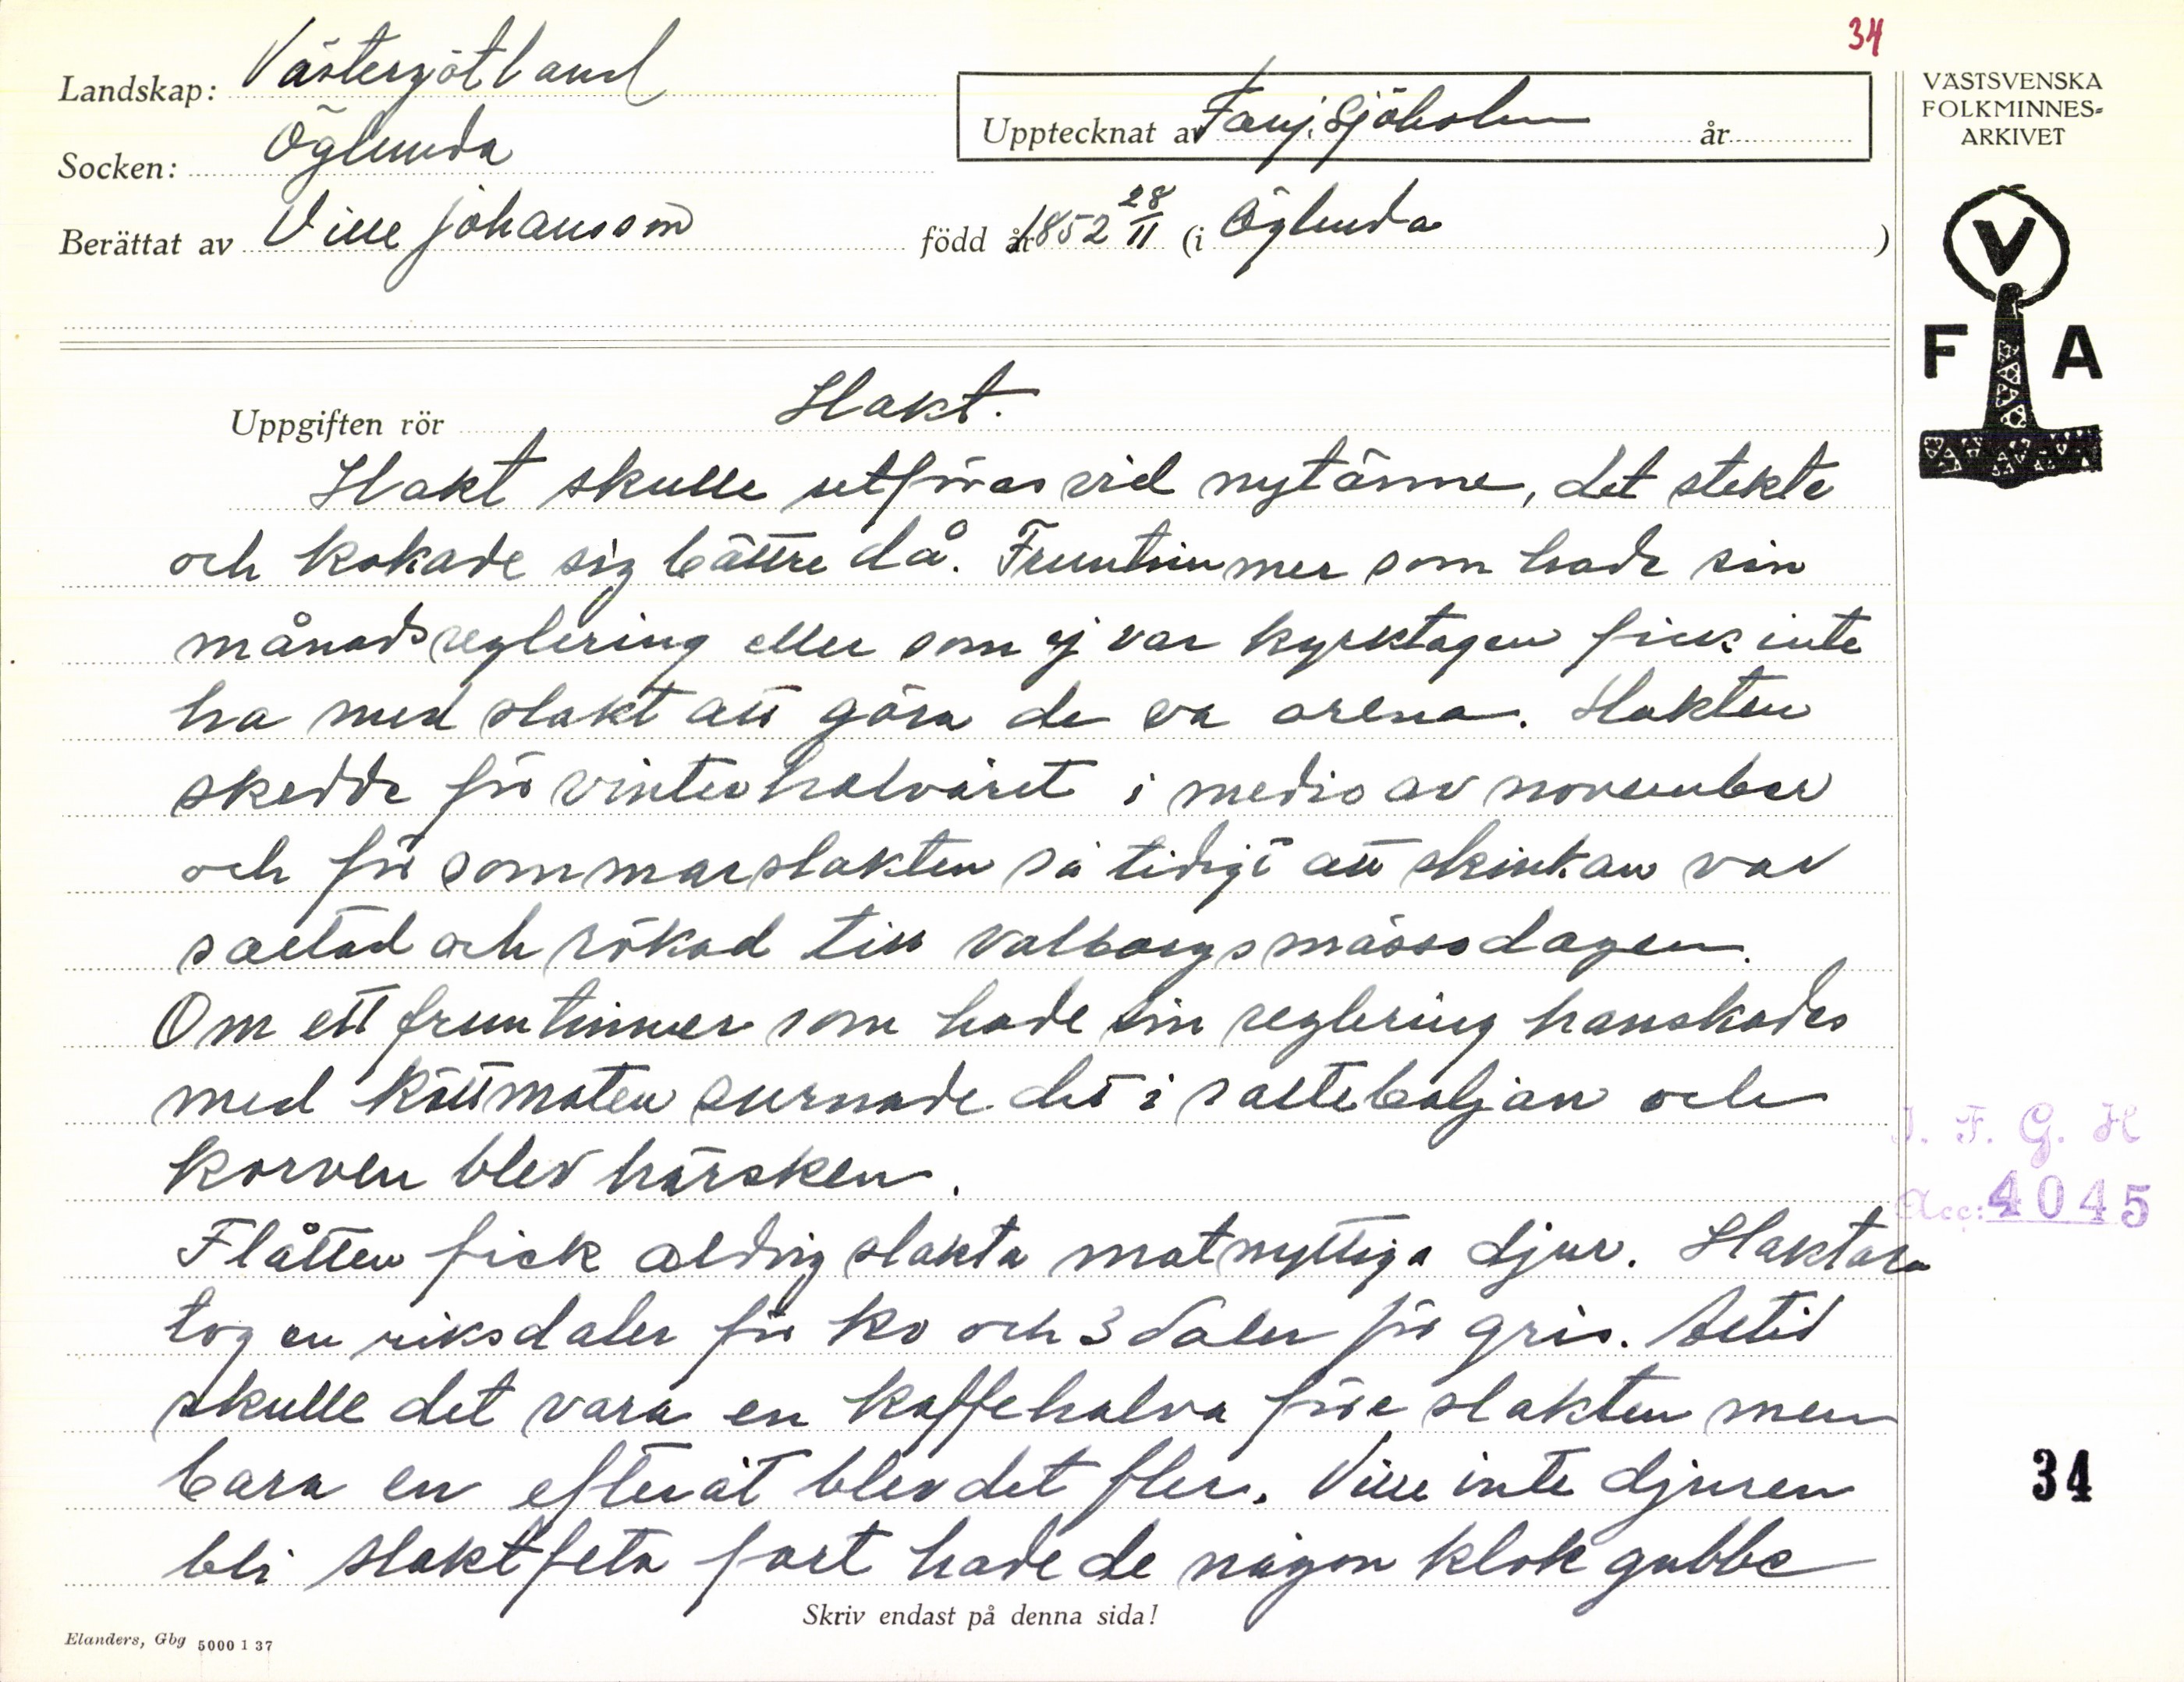 34
Landskap: Västergötland
Upptecknat av Fanj. Sjöholm år
VÄSTSVENSKA
FOLKMINNES=
ARKIVET
Socken: Öglunda
Berättat av Ville Johansson född år 1852 28/11 (i Öglunda )
V
F A
Uppgiften rör Slakt.
Slakt skulle utföras vid nytänne, det stekte
och kokade sig bättre då. Fruntimmer som hade sin
månadsreglering eller som ej var kyrktagen fick inte
ha med slakt att göra de va orena. Slakten
skedde för vinterhalvåret i medio av november
och för sommarslakten så tidigt att skinkan var
saltad och rökad till valborgsmässodagen.
Om ett fruntimmer som hade sin reglering hanskades
med köttmaten surnade det i saltebaljan och
korven blev härsken.
I. F. G. H
Acc: 4045
Flåtten fick aldrig slakta matnyttiga djur. Slaktara
tog en riksdaler för ko och 3 daler för gris. Altid
skulle det vara en kaffehalva före slakten men
bara en efteråt blev det fler. Ville inte djuren
34
bli slaktfeta fort hade de någon klok gubbe
Skriv endast på denna sida!
Elanders, Gbg 5000 1 37